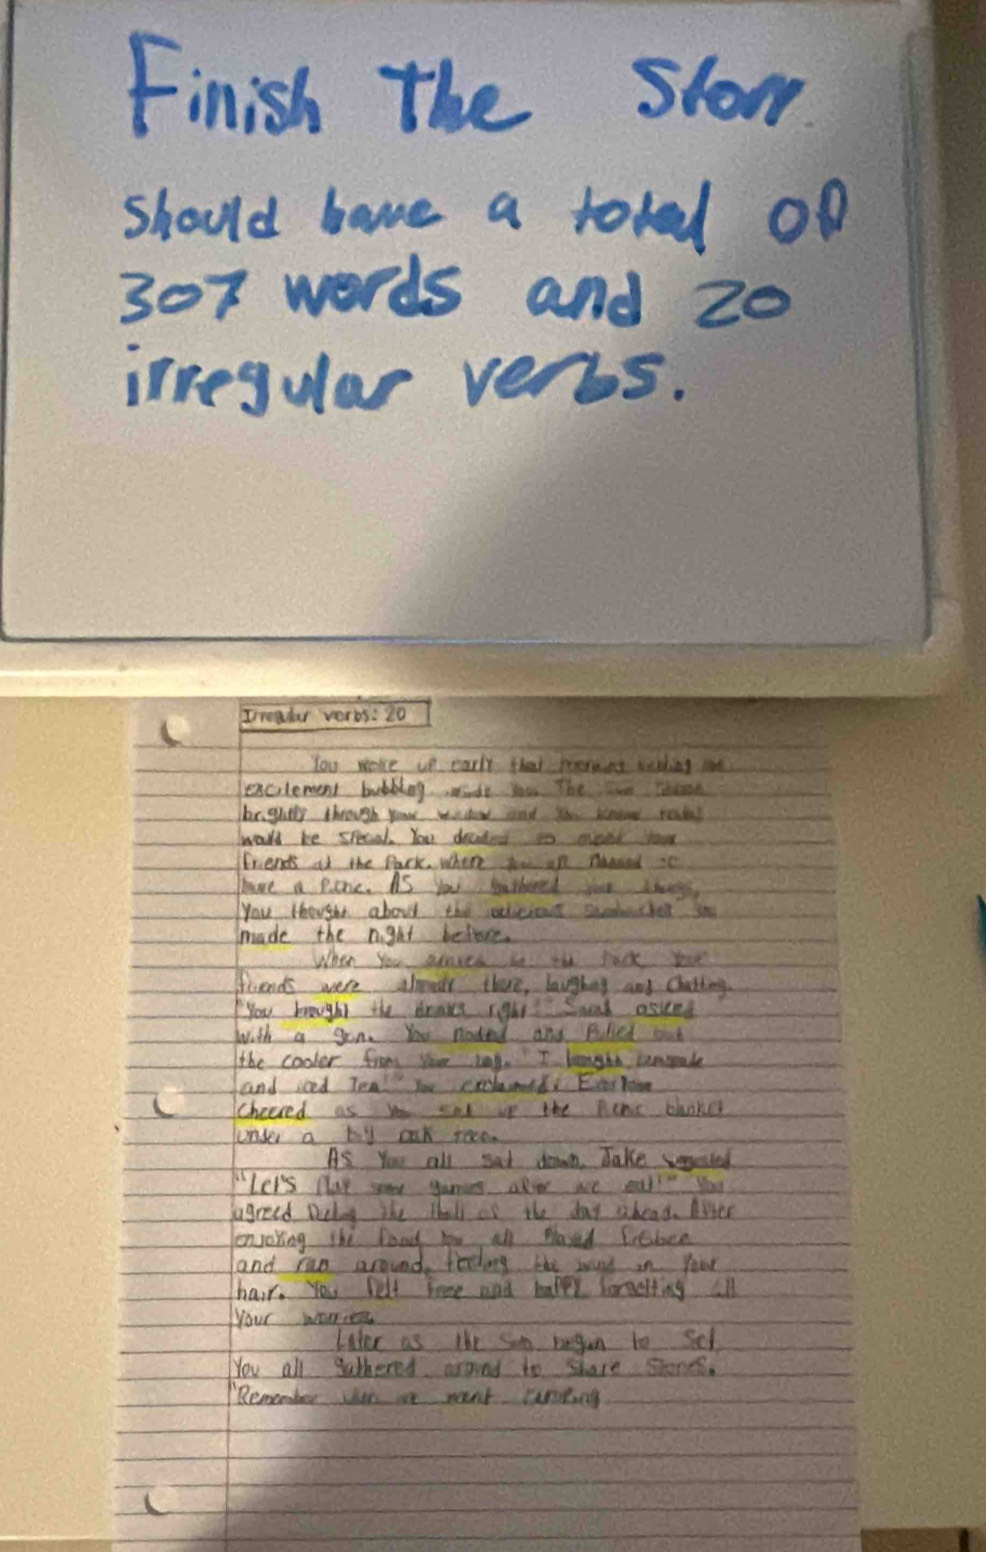 Finish The Story
should have a total of
307 words and 20
irregular verbs.
Irregular verbs: 20
You woke up early that morning feeling the
excitement bubbling inside you. The sun shone
brightly through your window and you knew today
would be special. You decided to meet your
friends at the Park. where you all Planned to
have a Picnic. As you gathered your things,
You thought about the delicious sandwiches you
made the night before.
When You arrived at the Park Your
friends were already there, laughing and Chatting.
"You brought the drinks right?" Sarah asked
with a grin. You nodded and Pulled out
the cooler from your bag. "I bought lemonade
and iced Tea!" You exclaimed. Everyone
Cheered as You set up the Picnic blanket
under a big oak tree.
As You all sat down, Jake suggested
"Let's Play some games after we eat!" You
agreed feeling the thrill of the day ahead. After
enjoying the food you all Played frisbee
and ran around, feeling the wind in Your
hair. You felt free and happy forgetting all
Your worries.
Later as the Sun began to Set,
You all gathered around to Share Stories.
"Remember when we went camping